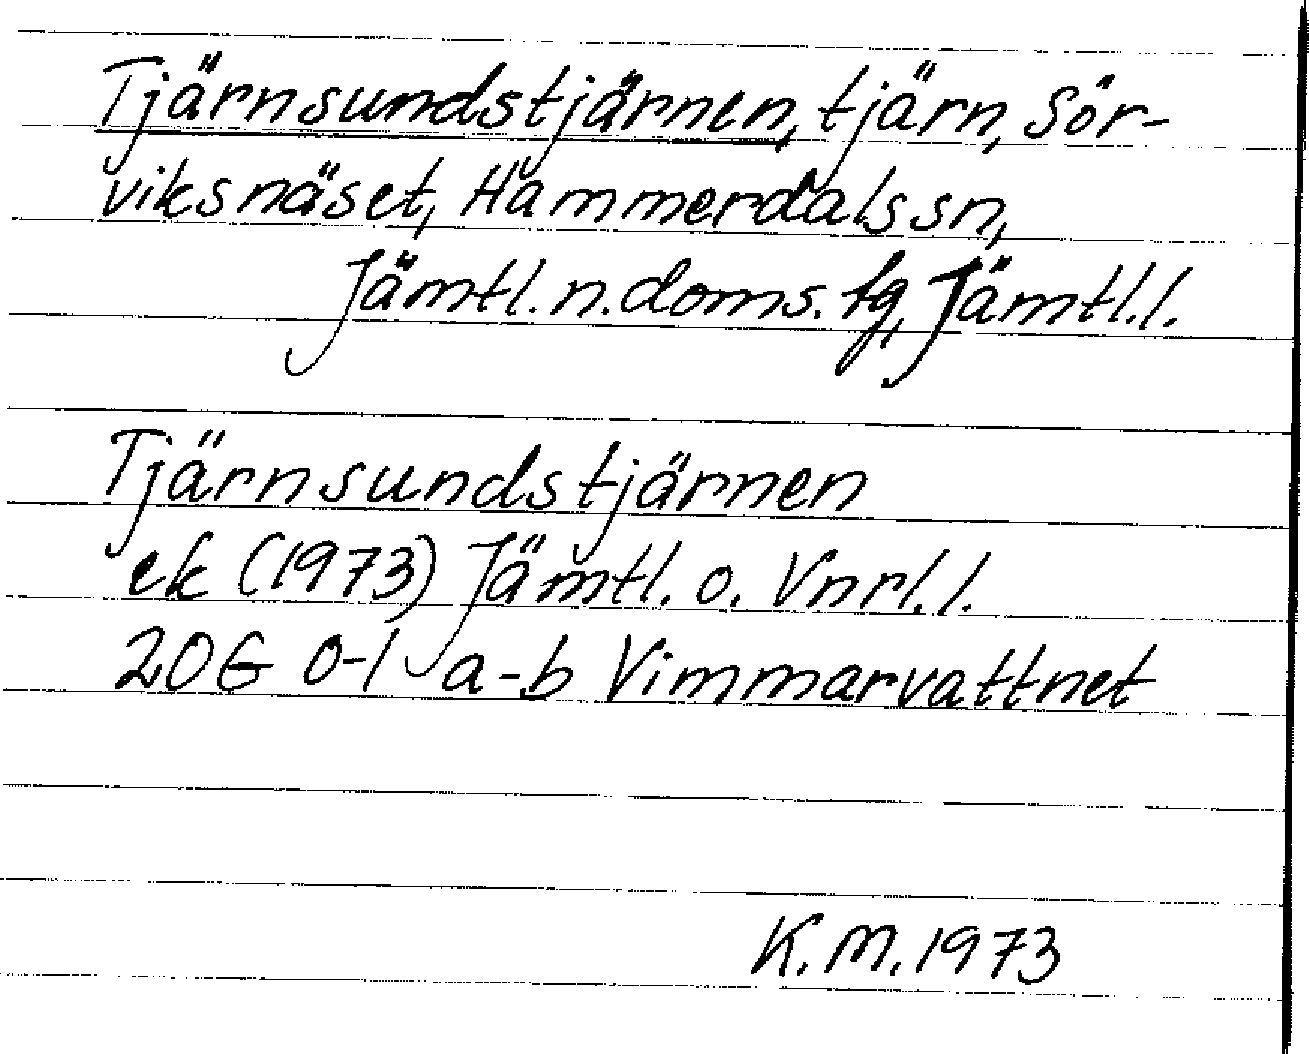 Tjärnsundstjärnen, tjärn, Sör-
viksnäset, Hammerdals sn,
Jämtl. n. doms. tg, Jämtl. l.
Tjärnsundstjärnen
ek (1973) Jämtl. o. Vnrl. l.
20G 0-1 a-b Vimmarvattnet
K. M. 1973